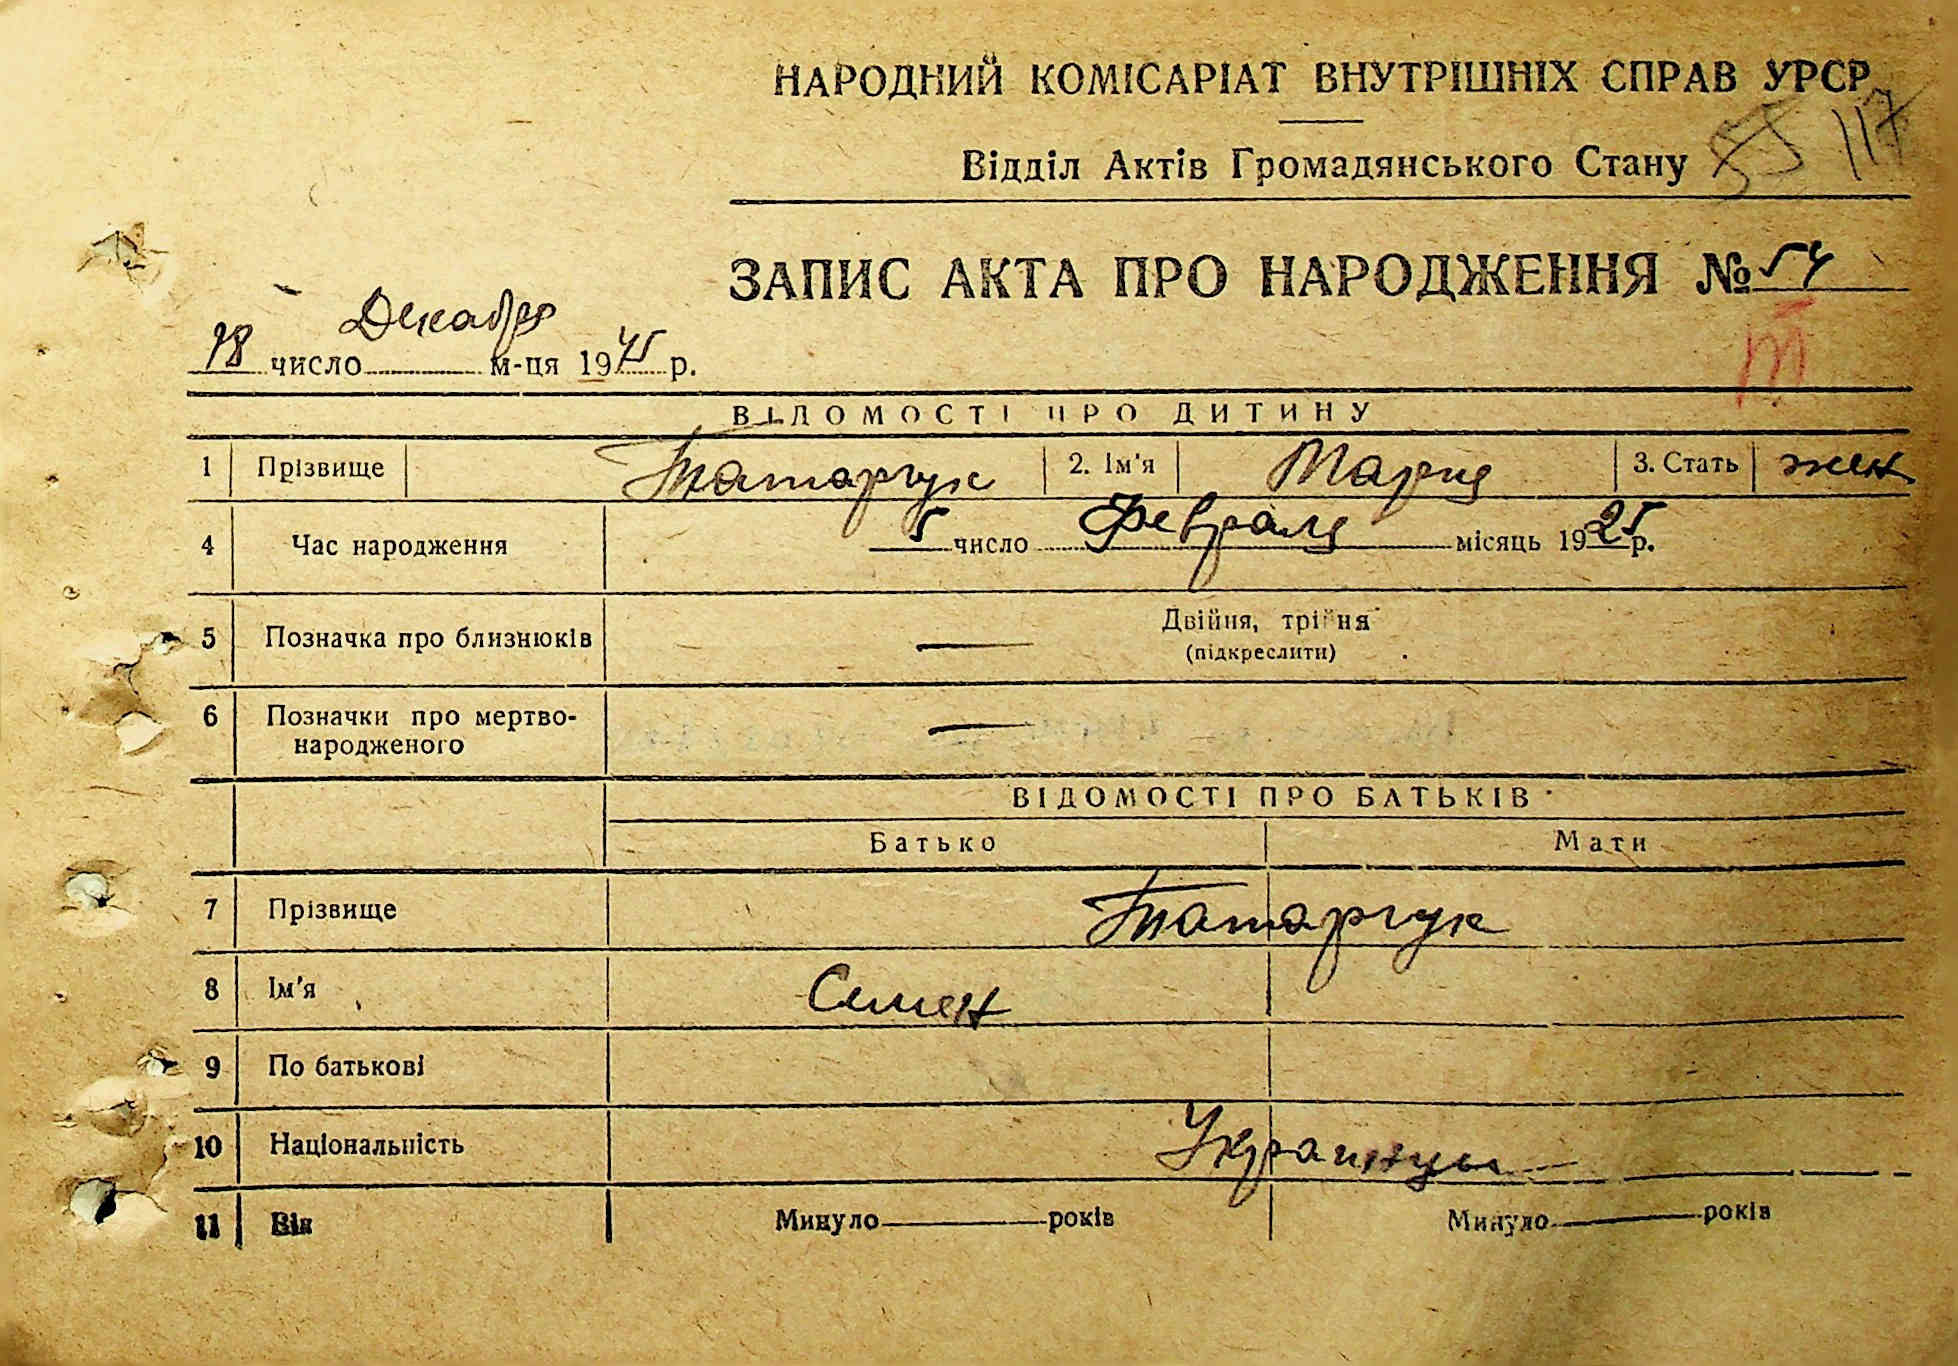 НАРОДНИЙ КОМІСАРІАТ ВНУТРІШНІХ СПРАВ УРСР
55 117
Відділ Актів Громадянського Стану
ЗАПИС АКТА ПРО НАРОДЖЕННЯ № 54
18 число Декабря м-ця 1945 р.
ВІДОМОСТІ ПРО ДИТИНУ
1 Прізвище Татарчук 2. Ім'я Мария 3. Стать жен
4 Час народження 5 число Февраля місяць 1925 р.
5 Позначка про близнюків — Двійня, трійня
(підкреслити)
6 Позначки про мертво-
народженого —
ВІДОМОСТІ ПРО БАТЬКІВ
Батько Мати
7 Прізвище Татарчук
8 Ім'я Семен
9 По батькові
10 Національність Украинцы
11 Вік Минуло — років Минуло — років